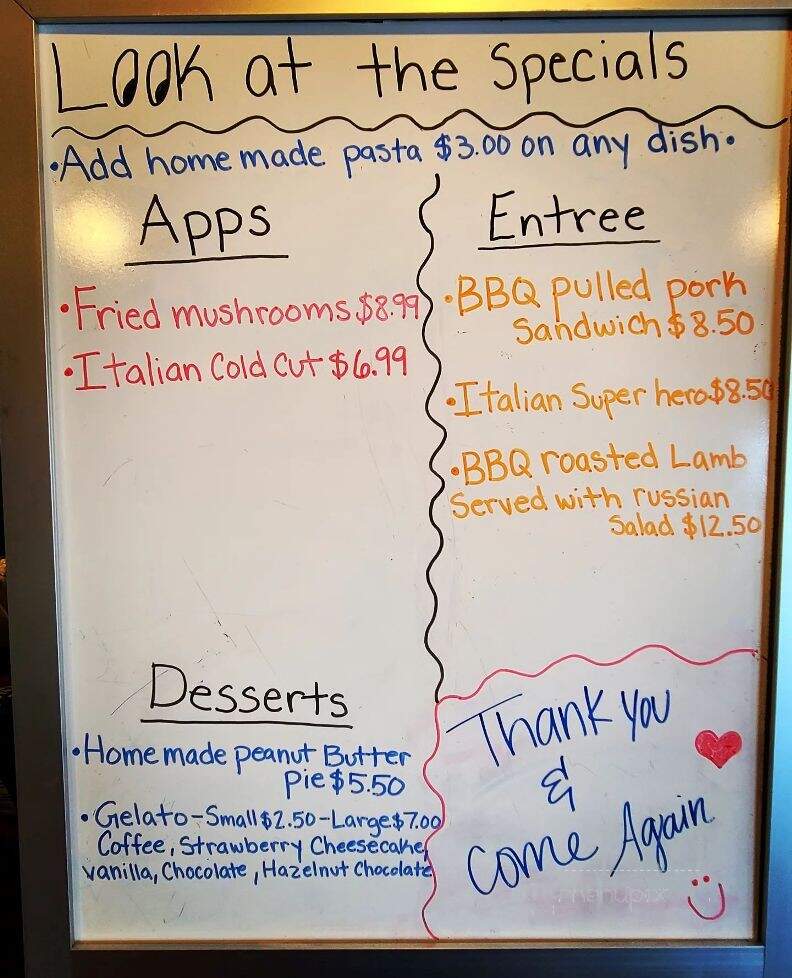 Look at the Specials
•Add home made pasta $3.00 on any dish•
Apps
•Fried mushrooms $8.99
•Italian Cold Cut $6.99
Entree
•BBQ pulled pork
Sandwich $8.50
•Italian Super hero $8.50
•BBQ roasted Lamb
Served with russian
Salad $12.50
Desserts
•Home made peanut Butter
Pie $5.50
•Gelato-Small $2.50-Large $7.00
Coffee, Strawberry Cheesecake,
Vanilla, Chocolate, Hazelnut Chocolate
Thank you
&
Come Again
menupix